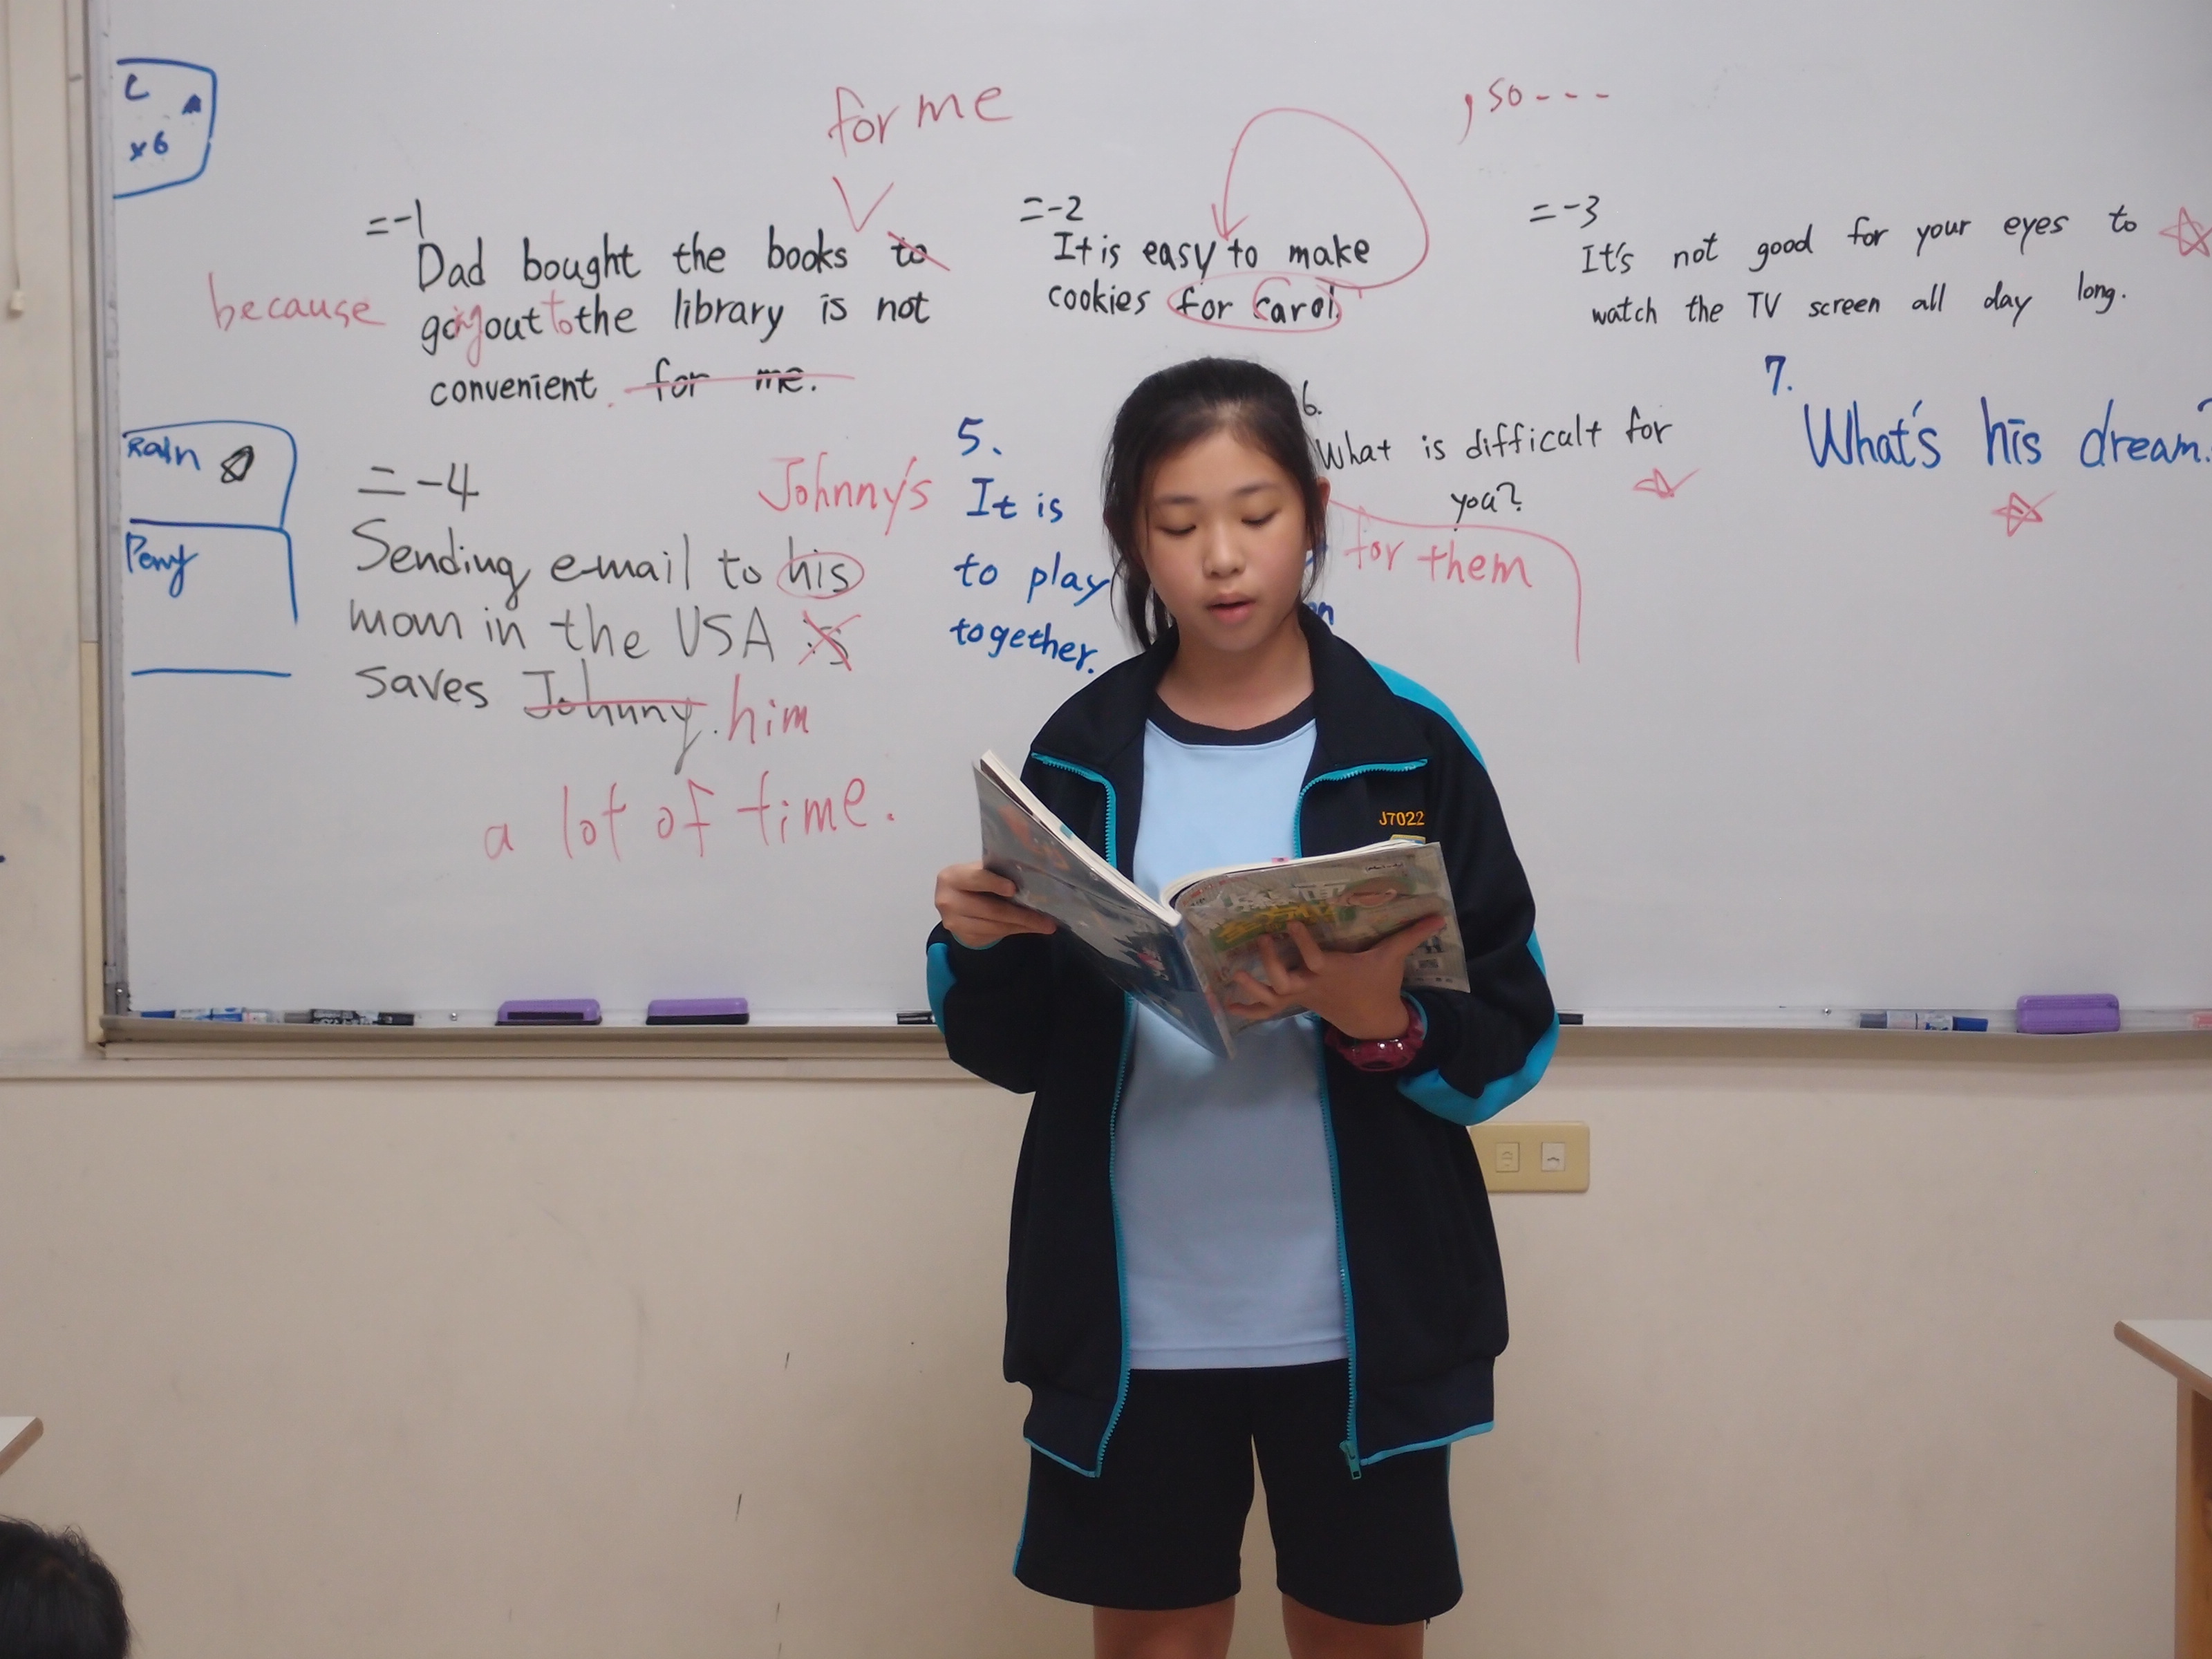 C
x6
for me
, so - - -
=-1
Dad bought the books to
because going out to the library is not
convenient. for me.
=-2
It is easy to make
cookies for Carol.
=-3
It's not good for your eyes to
watch the TV screen all day long.
Rain
=-4
Johnny's
Sending e-mail to his
mom in the USA is
saves Johnny. him
a lot of time.
5.
It is
to play
together.
for them
6.
What is difficult for
you?
7.
What's his dream?
J7022